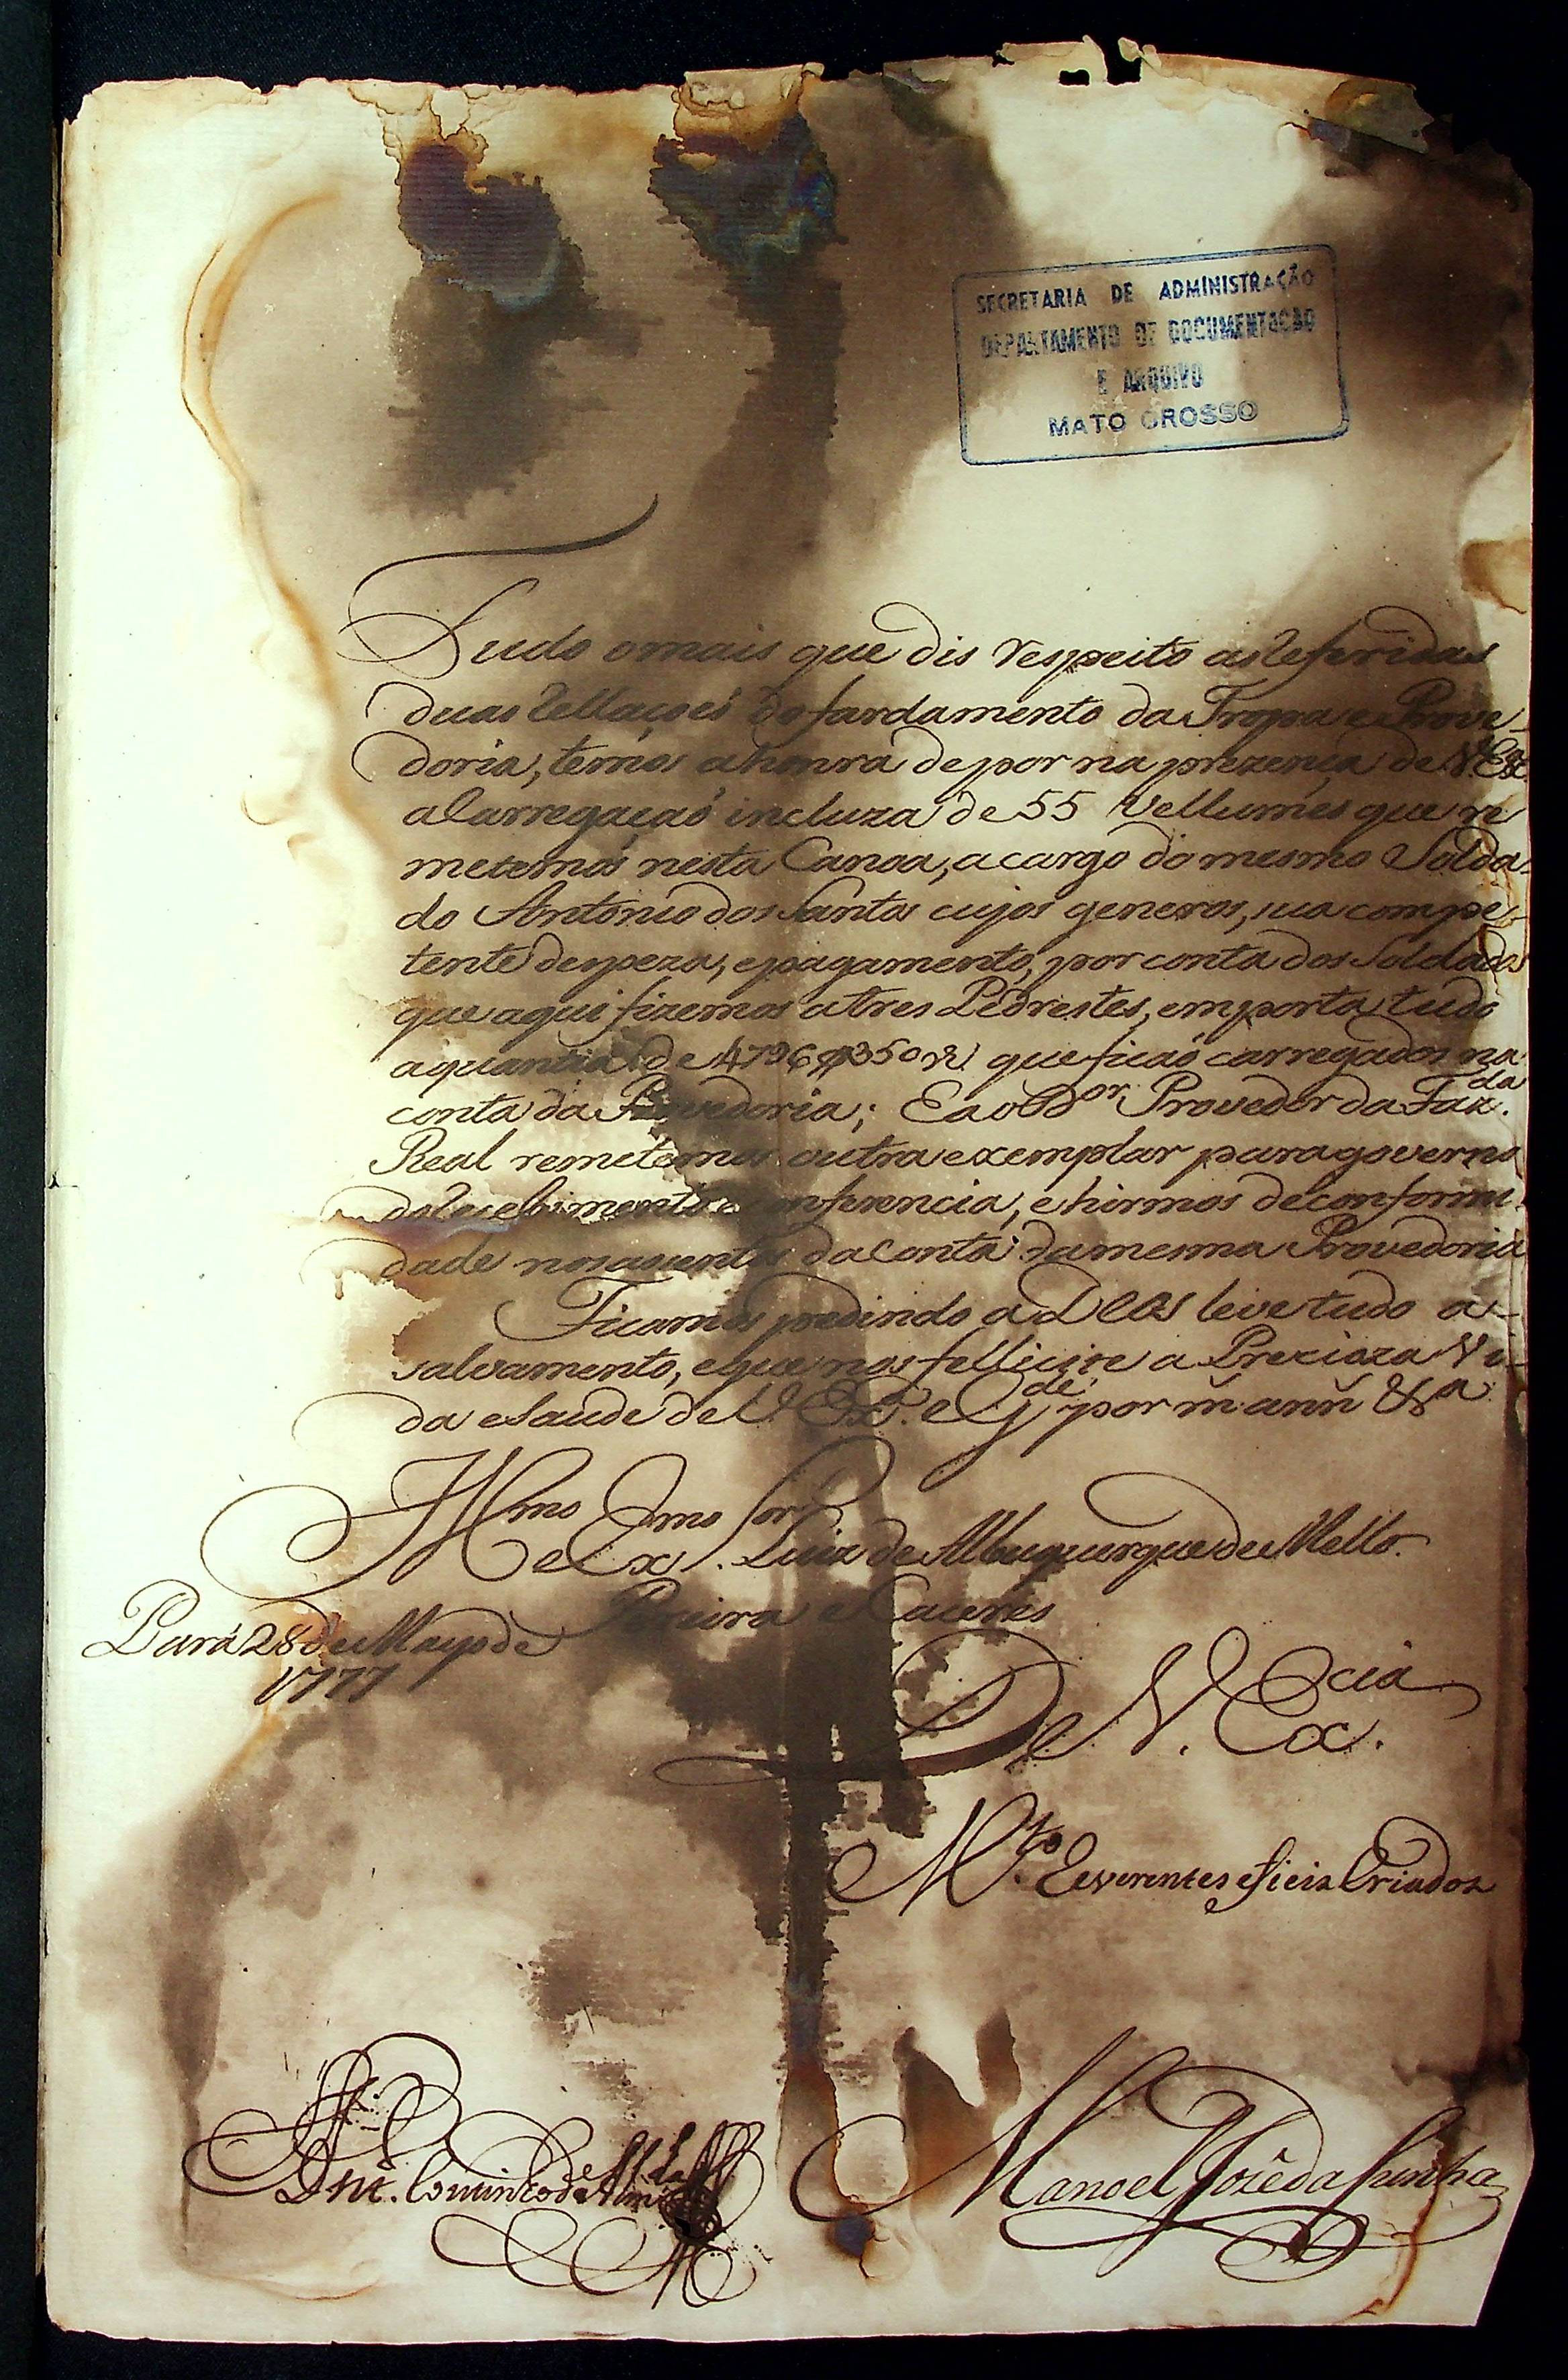 SECRETARIA DE ADMINISTRAÇÃO
DEPARTAMENTO DE DOCUMENTAÇÃO
E ARQUIVO
MATO GROSSO
Tudo omais que dis Respeito as Referidas
duas Rellaçoēs do fardamento da Tropa e Prove-
doria, temos ahonra depor na prezença de V. Exª
a Carregaçaõ incluza de 55 Vellumēs que re
metemos nesta Canoa, a cargo do mesmo Solda-
do Antonio dos Santos cujos generos, sua compe-
tente despeza, epagamento, por conta dos Soldados
que aqui fizemos atres Pedrestes, emporta tudo
aquantia de 4796$350 rs. que ficaõ carregados na
conta da Provedoria; E ao Dor. Provedor da Fazda.
Real remetemos outra exemplar para governo
do Recebimento e conferencia, e hirmos de conformi-
dade nos asentos da Conta da mesma Provedoria
Ficamos pedindo a DEOS leve tudo a-
salvamento, eque nos fellicite a Precioza Vi-
da eSaude de V. Exª. e Gde. por m. ann &ª
Illmo e Exmo Sor. Luiz de Albuquerque de Mello.
Pereira e Caceres
Pará 28 de Mayo de
1777
De V. Excia.
Mto. Reverentes e fieis Criados
Manoel Jozê da Cunha